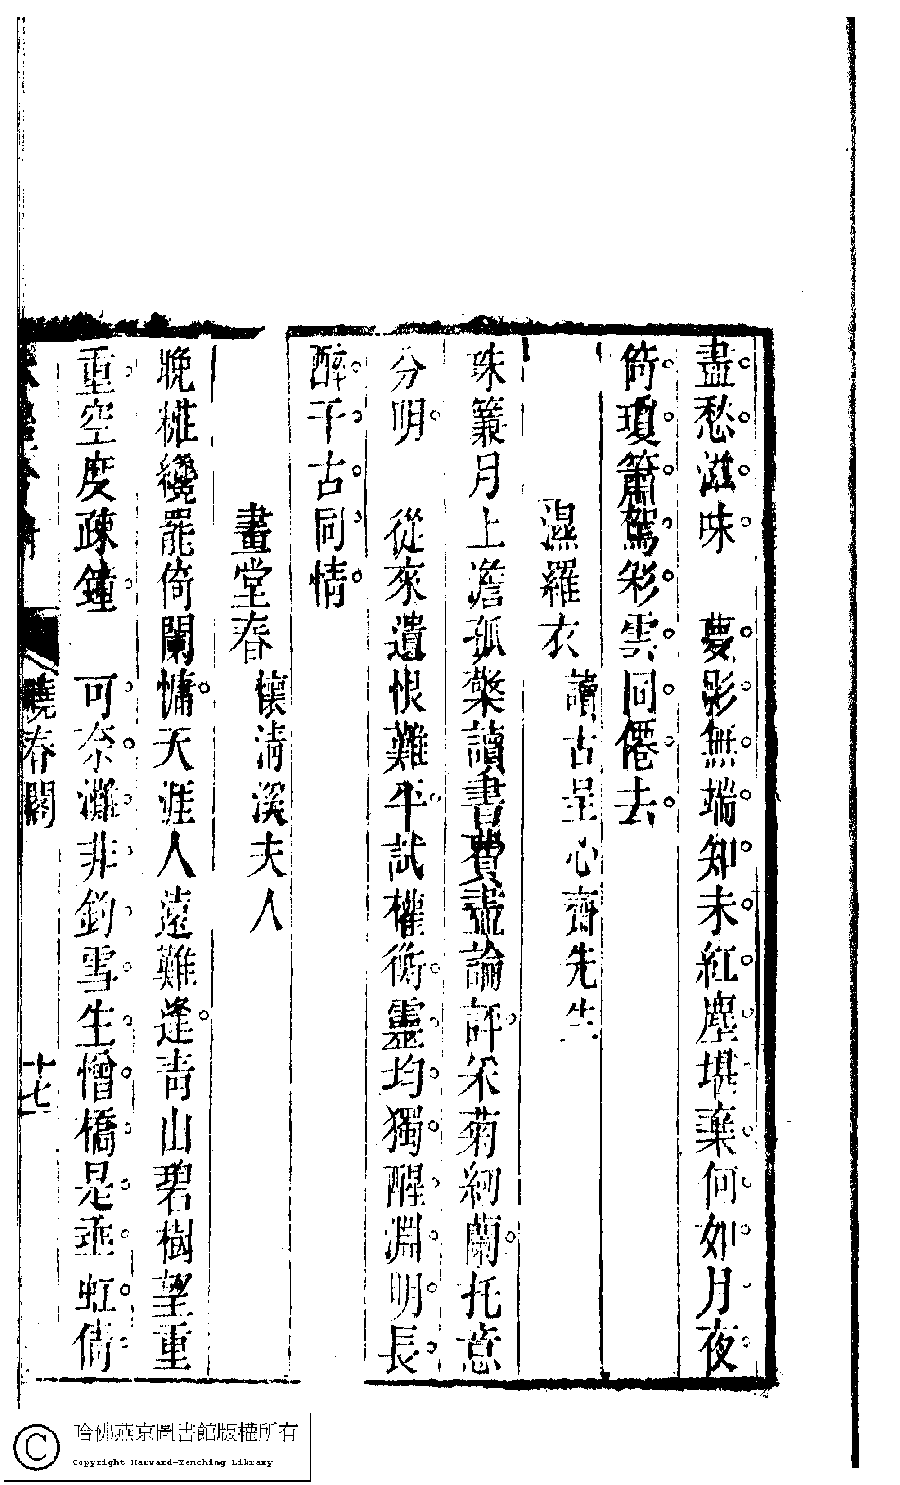 盡愁滋味　夢影無端知未紅塵堪棄何如月夜
倚瓊簫駕彩雲同僊去
濕羅衣　讀古呈心齋先生
珠簾月上澹孤檠讀書費盡論評采菊紉蘭托意
分明　從來遺恨難平試權衡靈均獨醒淵明長
醉千古同情
畫堂春　懷清溪夫人
晚粧纔罷倚闌慵天涯人遠難逢青山碧樹望重
重空度疎鐘　可奈灘非釣雪生憎橋是垂虹倩
曉春閣　十七
哈佛燕京圖書館版權所有
Copyright Harvard-Yenching Library